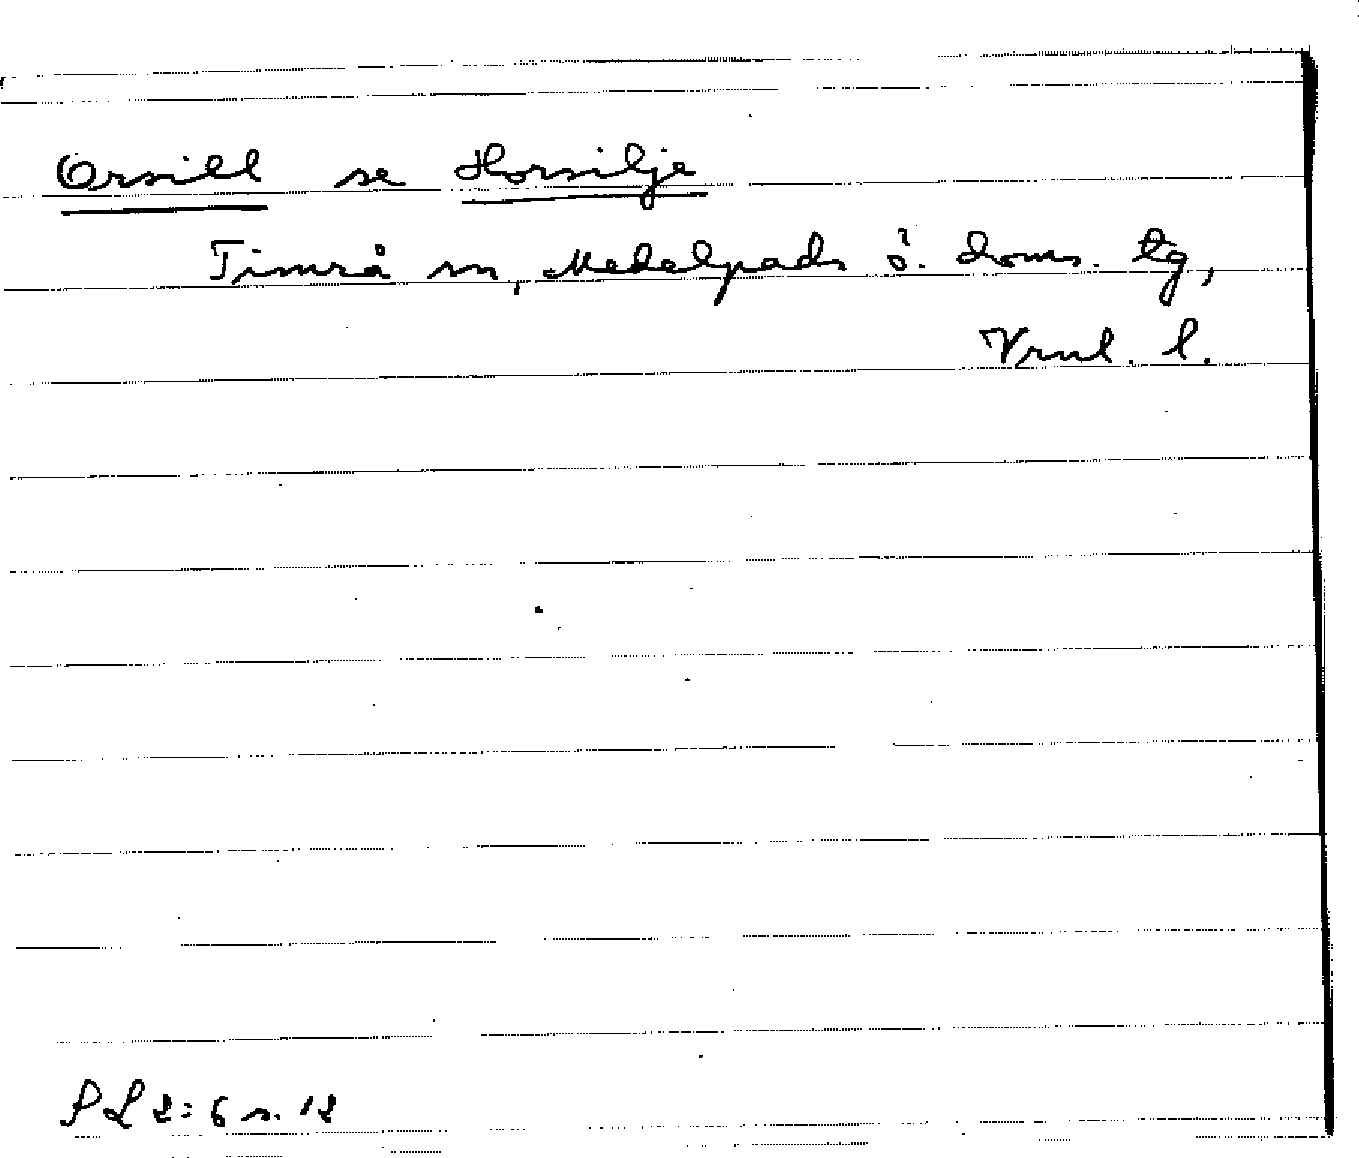 Orsill se Horsilje
Timrå sn, Medelpads ö. doms. tg,
Vrnl. l.
PL 2:6 s. 12